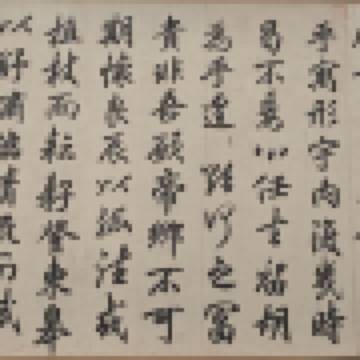 乎寓形宇內復幾時
曷不委心任去留胡
為乎遑〻欲何之富
貴非吾願帝鄉不可
期懷良辰以孤往或
植杖而耘耔登東皋
以舒嘯臨清流而賦